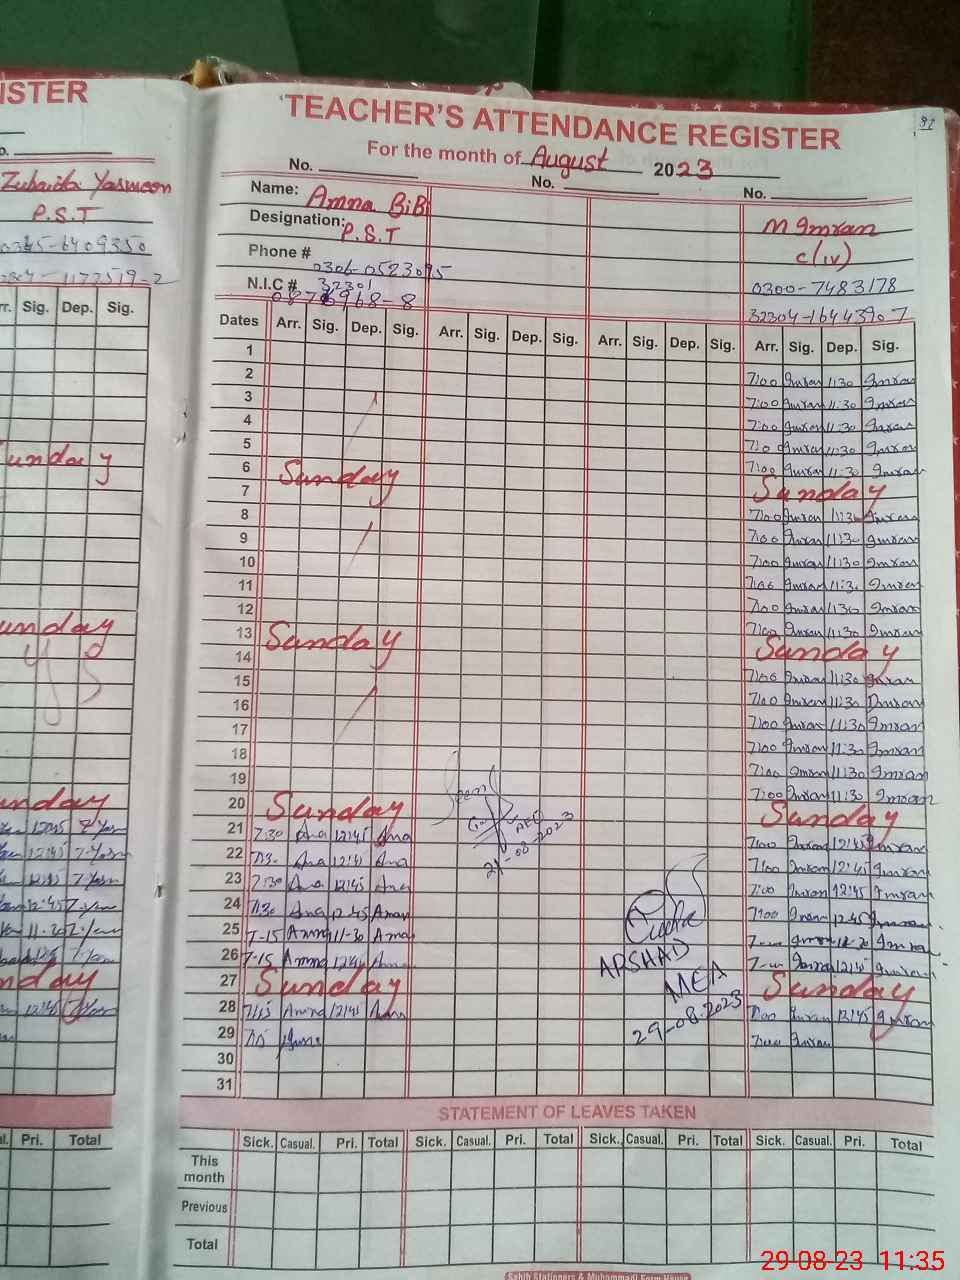 ISTER
TEACHER'S ATTENDANCE REGISTER
For the month of August 2023
No. No. No.
Zubaida Yasmeen
P.S.T
0345-6409350
Name: Amna BiBi
Designation: P.S.T
Phone # 0306-0523095
N.I.C # 32301
M Imran
C(iv)
0300-7483178
32304-1644390 7
Arr. Sig. Dep. Sig.
Dates Arr. Sig. Dep. Sig. Arr. Sig. Dep. Sig. Arr. Sig. Dep. Sig. Arr. Sig. Dep. Sig.
1
2 7:00 Imran 11:30 Imran
3 7:00 Imran 11:30 Imran
4 7:00 Imran 11:30 Imran
5 7:00 Imran 11:30 Imran
6 Sunday 7:00 Imran 11:30 Imran
7 Sunday
8 7:00 Imran 11:30 Imran
9 7:00 Imran 11:30 Imran
10 7:00 Imran 11:30 Imran
11 7:00 Imran 11:30 Imran
12 7:00 Imran 11:30 Imran
13 Sunday 7:00 Imran 11:30 Imran
14 Sunday
15 7:00 Imran 11:30 Imran
16 7:00 Imran 11:30 Imran
17 7:00 Imran 11:30 Imran
18 7:00 Imran 11:30 Imran
19 7:00 Imran 11:30 Imran
20 Sunday 7:00 Imran 11:30 Imran
Sunday
21 7:30 Ama 12:45 Ama 7:00 Imran 12:45 Imran
22 7:30 Ama 12:45 Ama 7:00 Imran 12:45 Imran
23 7:30 Ama 12:45 Ama 7:00 Imran 12:45 Imran
24 7:30 Ama 12:45 Aman 7:00 Imran 12:45 Imran
25 7-15 Amna 11-30 Ama Imran Imran
26 7-15 Amna 12:45 Ama Imran 12:45 Imran
27 Sunday Sunday
28 7:15 Amna 12:45 Ama 7:00 Imran 12:45 Imran
29 7:15 7:00 Imran
30
31
Seen
AEO
21-08-2023
ARSHAD
MEA
29-08-2023
STATEMENT OF LEAVES TAKEN
Pri. Total
Sick. Casual. Pri. Total Sick. Casual. Pri. Total Sick. Casual. Pri. Total Sick. Casual. Pri. Total
This month
Previous
Total
Sahib Stationers & Muhammadi Form House
29-08-23 11:35